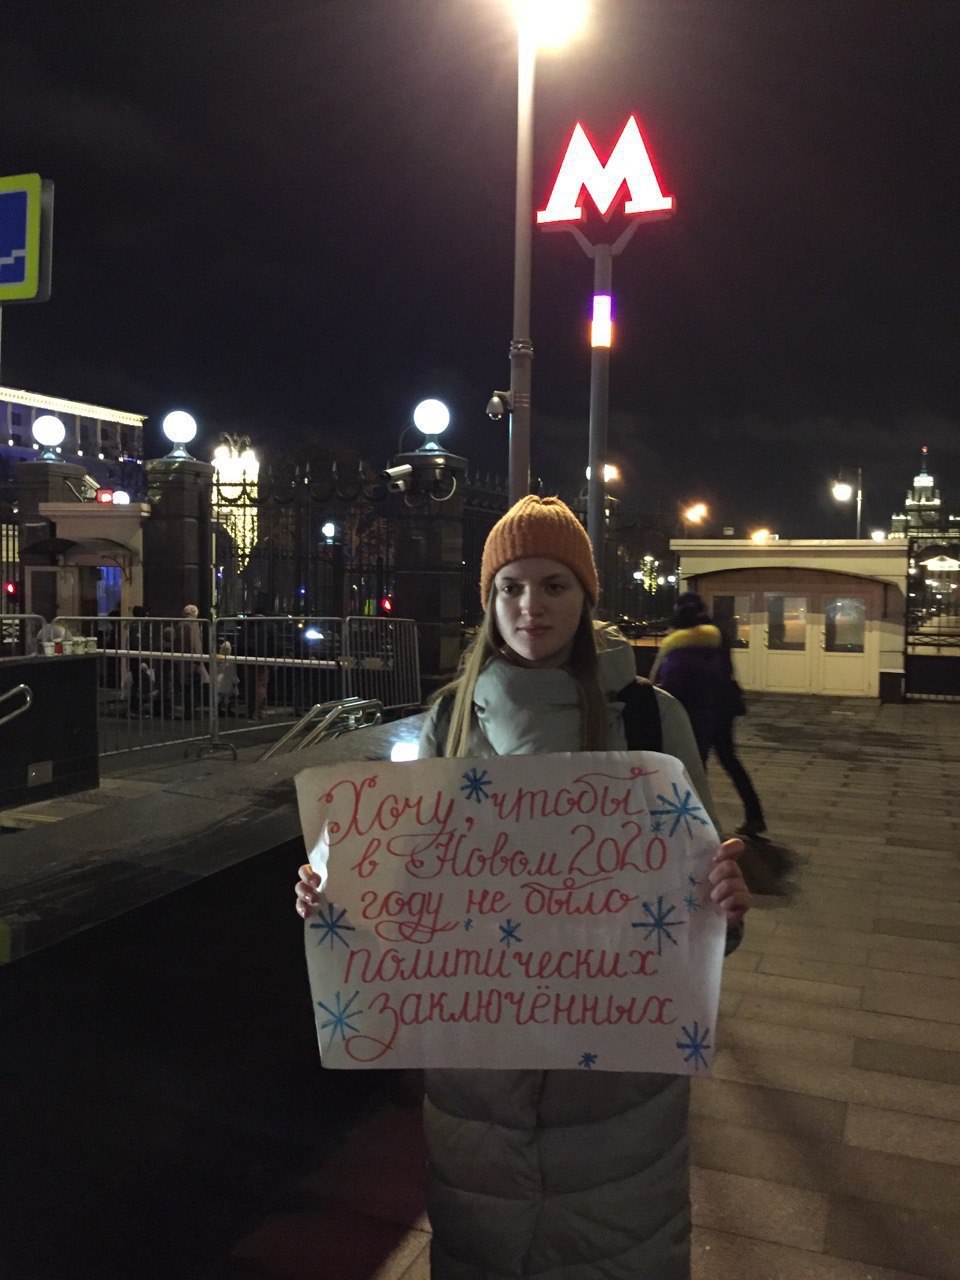 М
Хочу, чтобы
в Новом 2020
году не было
политических
заключённых